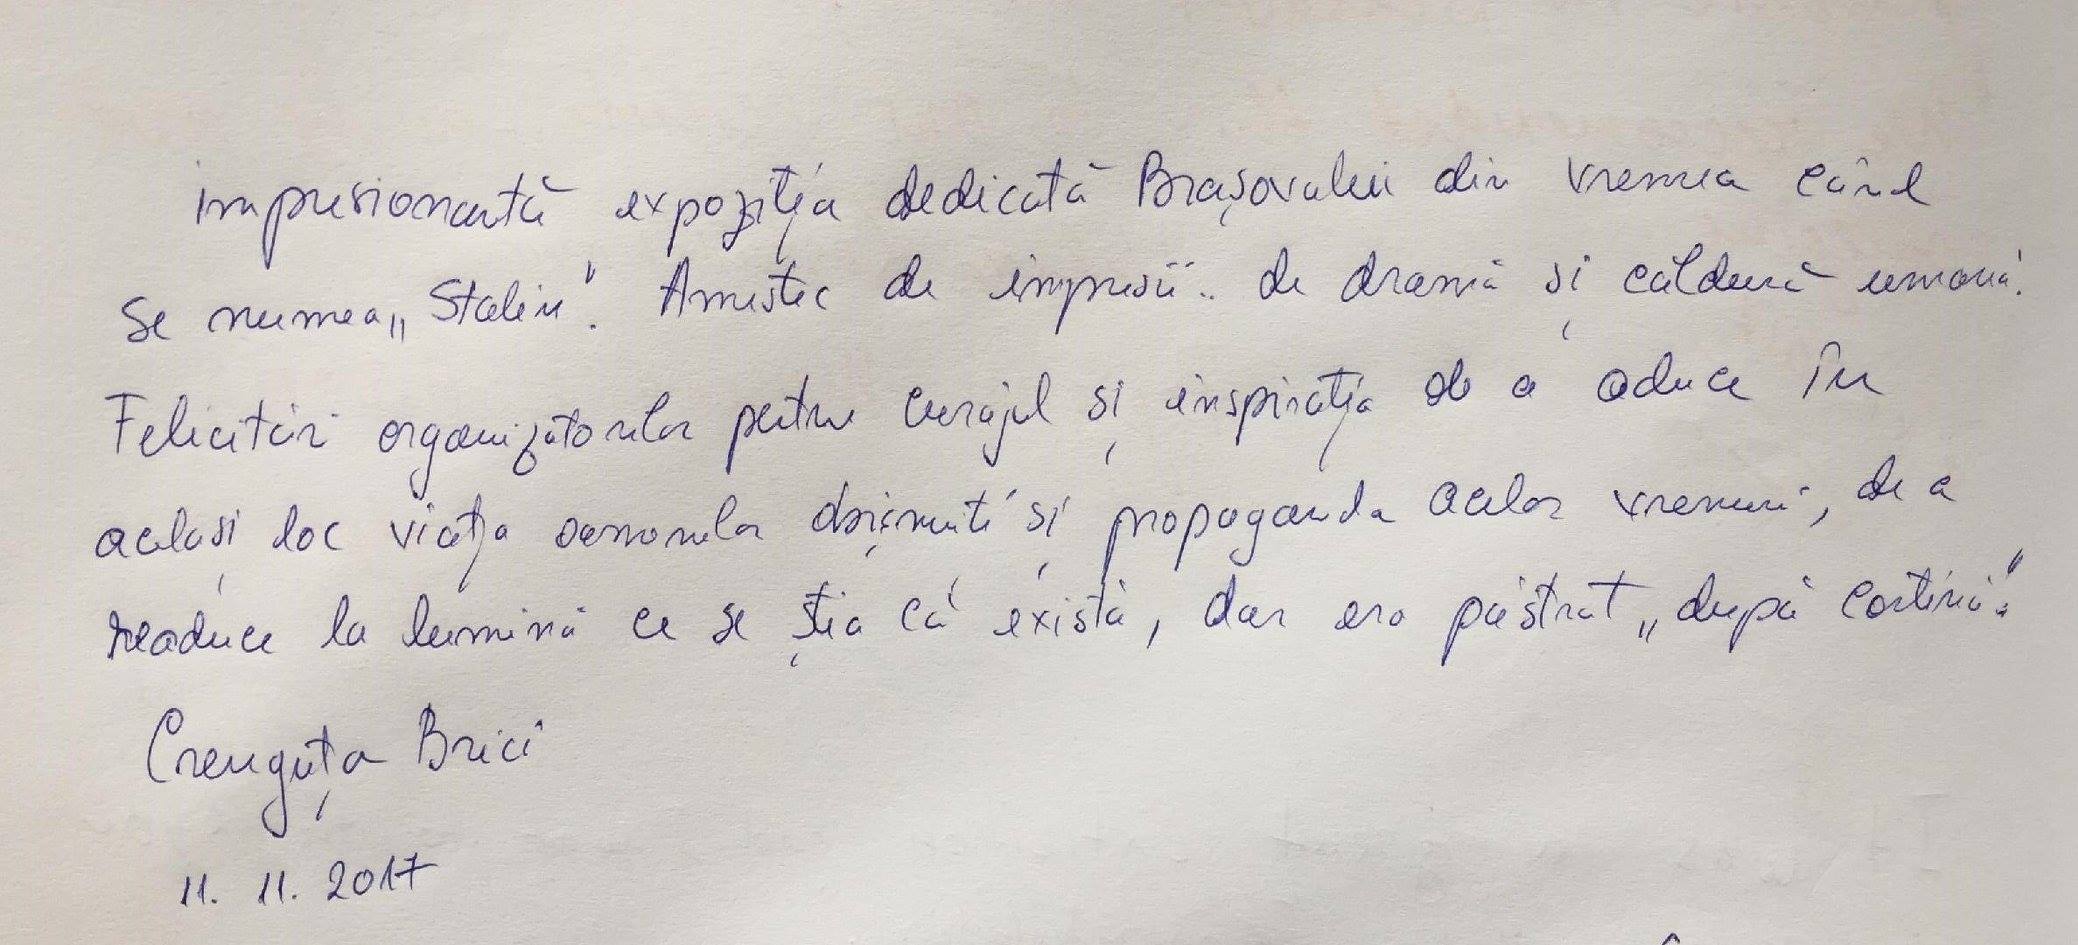 impresionantă expoziția dedicată Brașovului din vremea când
se numea „Stalin". Amestec de impresii.. de dramă și căldură umană.
Felicitări organizatorilor pentru curajul și inspirația de a aduce în
același loc viața oamenilor obișnuiți și propaganda acelor vremuri, de a
readuce la lumină ce se știa că există, dar era păstrat „după cortină".
Crenguța Brici
11. 11. 2017